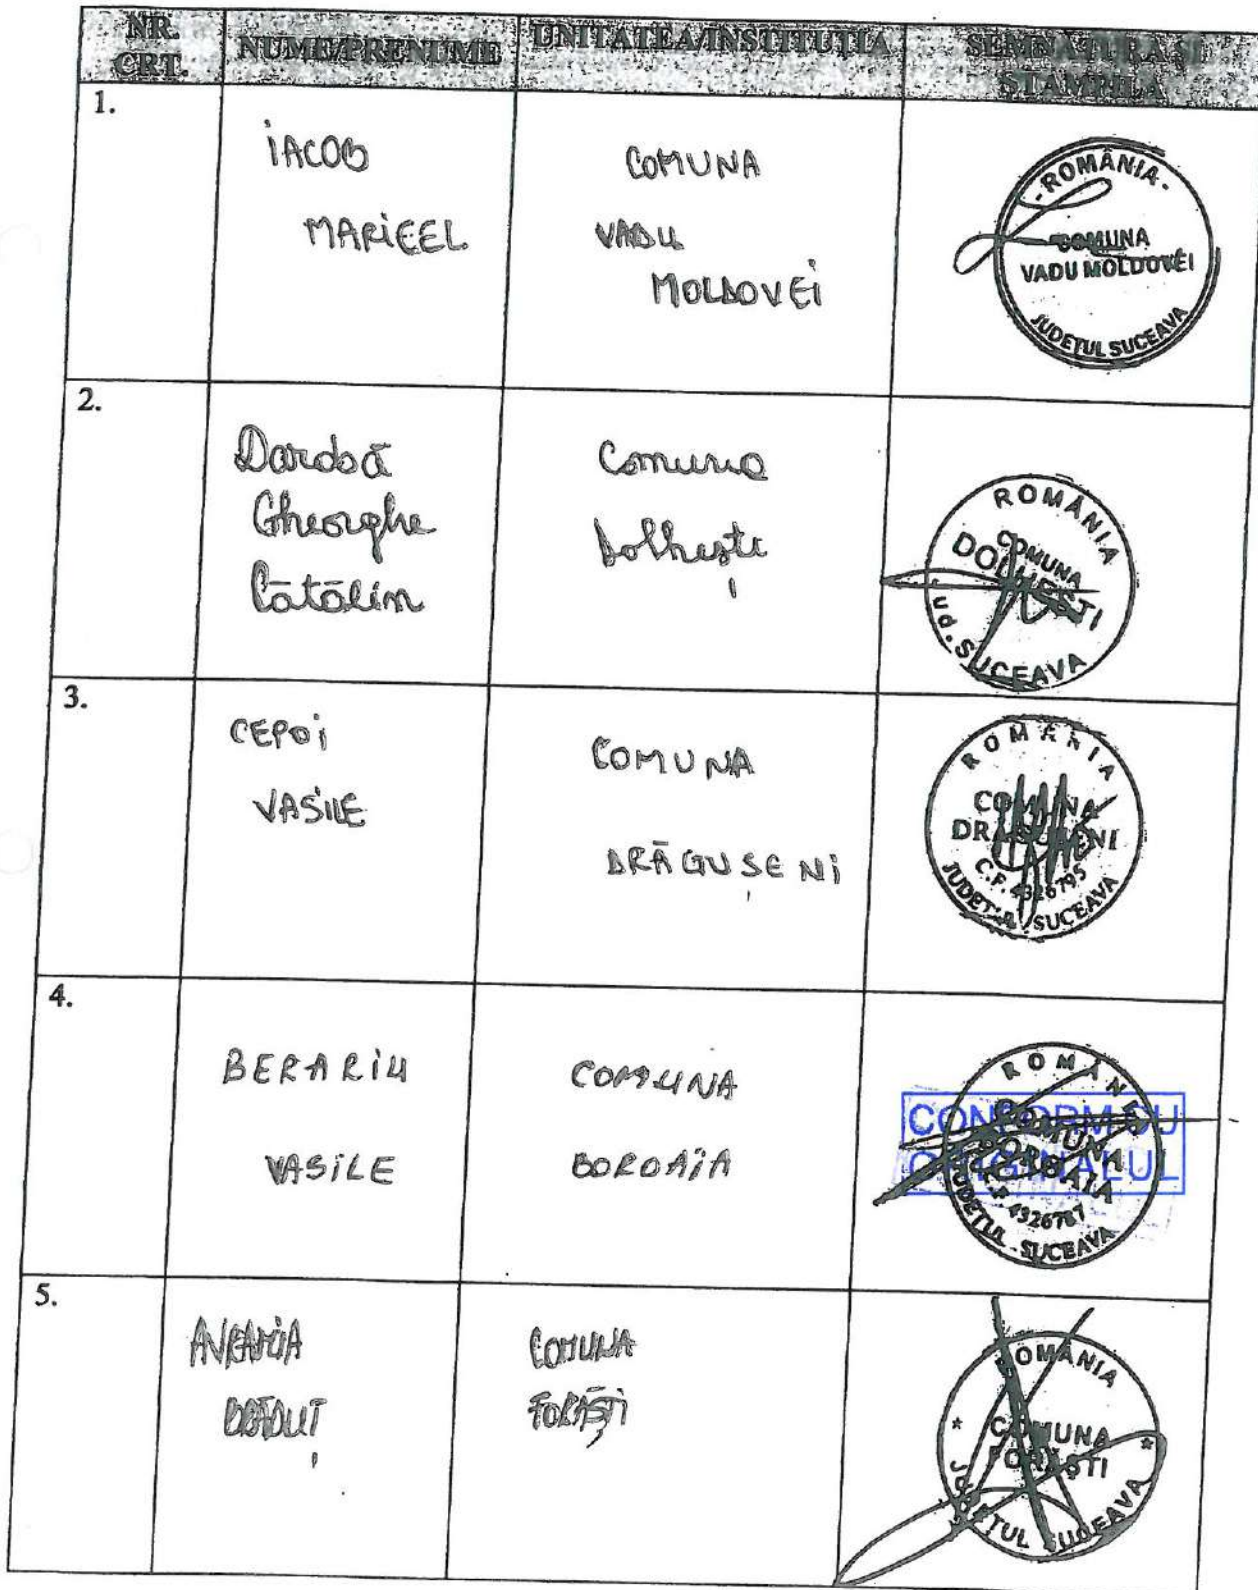 NR. CRT.
NUME/PRENUME
UNITATEA/INSTITUTIA
SEMNATURA ȘI
STAMPILA
1.
IACOB
MARICEL
COMUNA
VADU
MOLDOVEI
-ROMÂNIA-
COMUNA
VADU MOLDOVEI
JUDEȚUL SUCEAVA
2.
Dardoă
Gheorghe
Cătălin
Comuna
Dolhești
ROMÂNIA
COMUNA
DOLHEȘTI
Jud. SUCEAVA
3.
CEPOI
VASILE
COMUNA
DRĂGUȘENI
ROMÂNIA
COMUNA
DRĂGUȘENI
C.F. 4326795
JUDEȚUL SUCEAVA
4.
BERARIU
VASILE
COMUNA
BOROAIA
ROMÂNIA
COMUNA
BOROAIA
4326787
JUDEȚUL SUCEAVA
CONFORM CU
ORIGINALUL
5.
AVRAMIA
BRĂDUȚ
COMUNA
FORĂȘTI
ROMÂNIA
COMUNA
FORĂȘTI
JUDEȚUL SUCEAVA